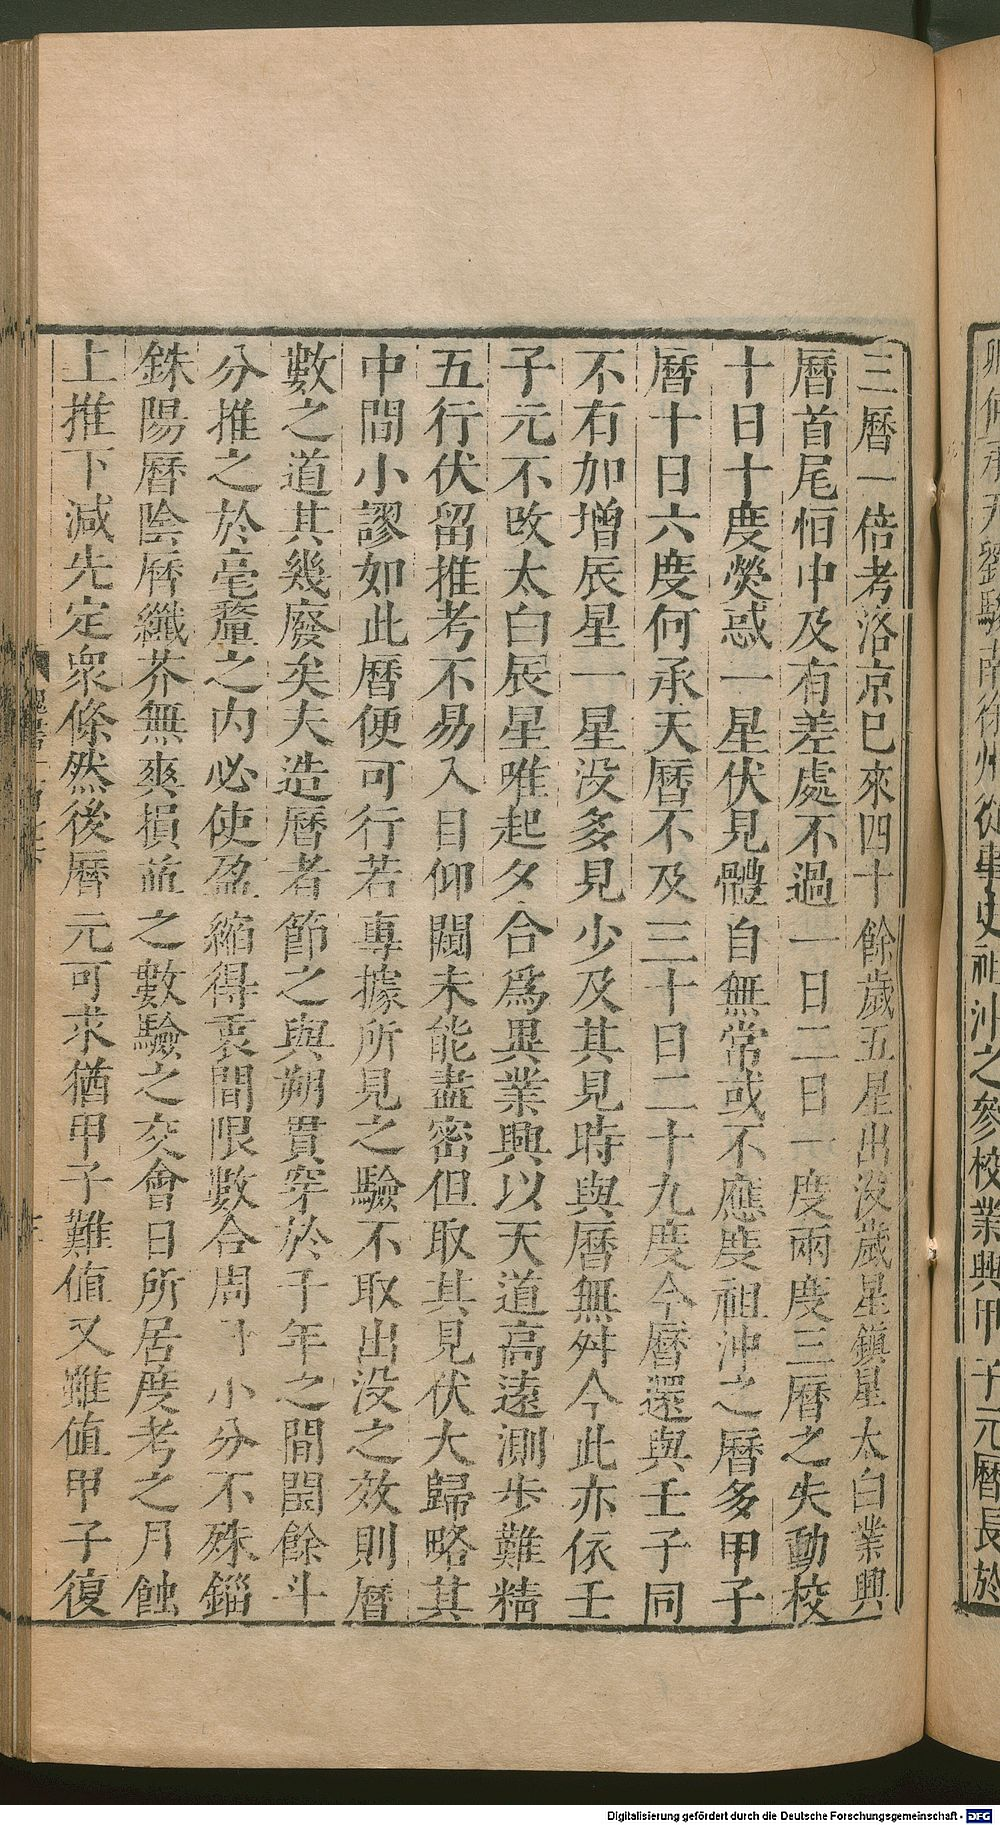 三曆一倍考洛京已來四十餘歲五星出沒歲星鎮星太白業興
曆首尾恒中及有差處不過一日二日一度兩度三曆之失動校
十日十度熒惑一星伏見體自無常或不應度祖沖之曆多甲子
曆十日六度何承天曆不及三十日二十九度今曆還與壬子同
不有加增辰星一星没多見少及其見時與曆無舛今此亦依壬
子元不改太白辰星唯起夕合爲異業興以天道高遠測步難精
五行伏留推考不易入目仰闚未能盡密但取其見伏大歸略其
中間小謬如此曆便可行若專據所見之驗不取出没之效則曆
數之道其幾廢矣夫造曆者節之與朔貫穿於千年之間閏餘斗
分推之於毫釐之内必使盈縮得衷間限數合周日小分不殊錙
銖陽曆陰曆纖芥無爽損益之數驗之交會日所居度考之月蝕
上推下減先定衆條然後曆元可求猶甲子難值又雖值甲子復
祖沖之參校業興甲子元曆長於
Digitalisierung gefördert durch die Deutsche Forschungsgemeinschaft - DFG